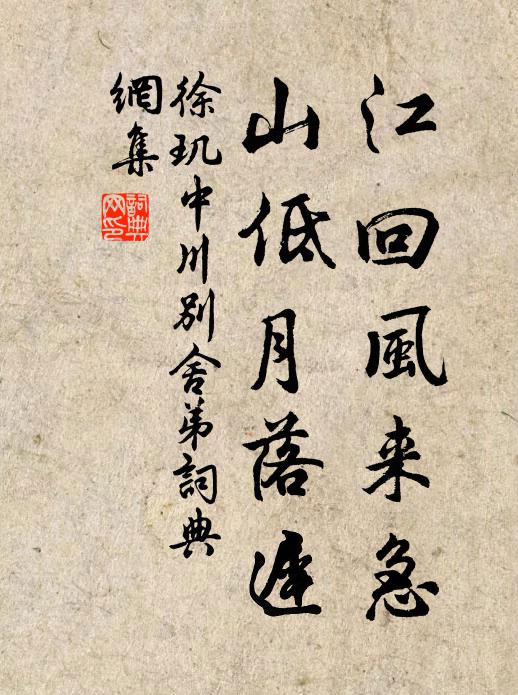 江回風来急
山低月落遲
徐玑中川别舍弟詞典
網集
詞典
网印